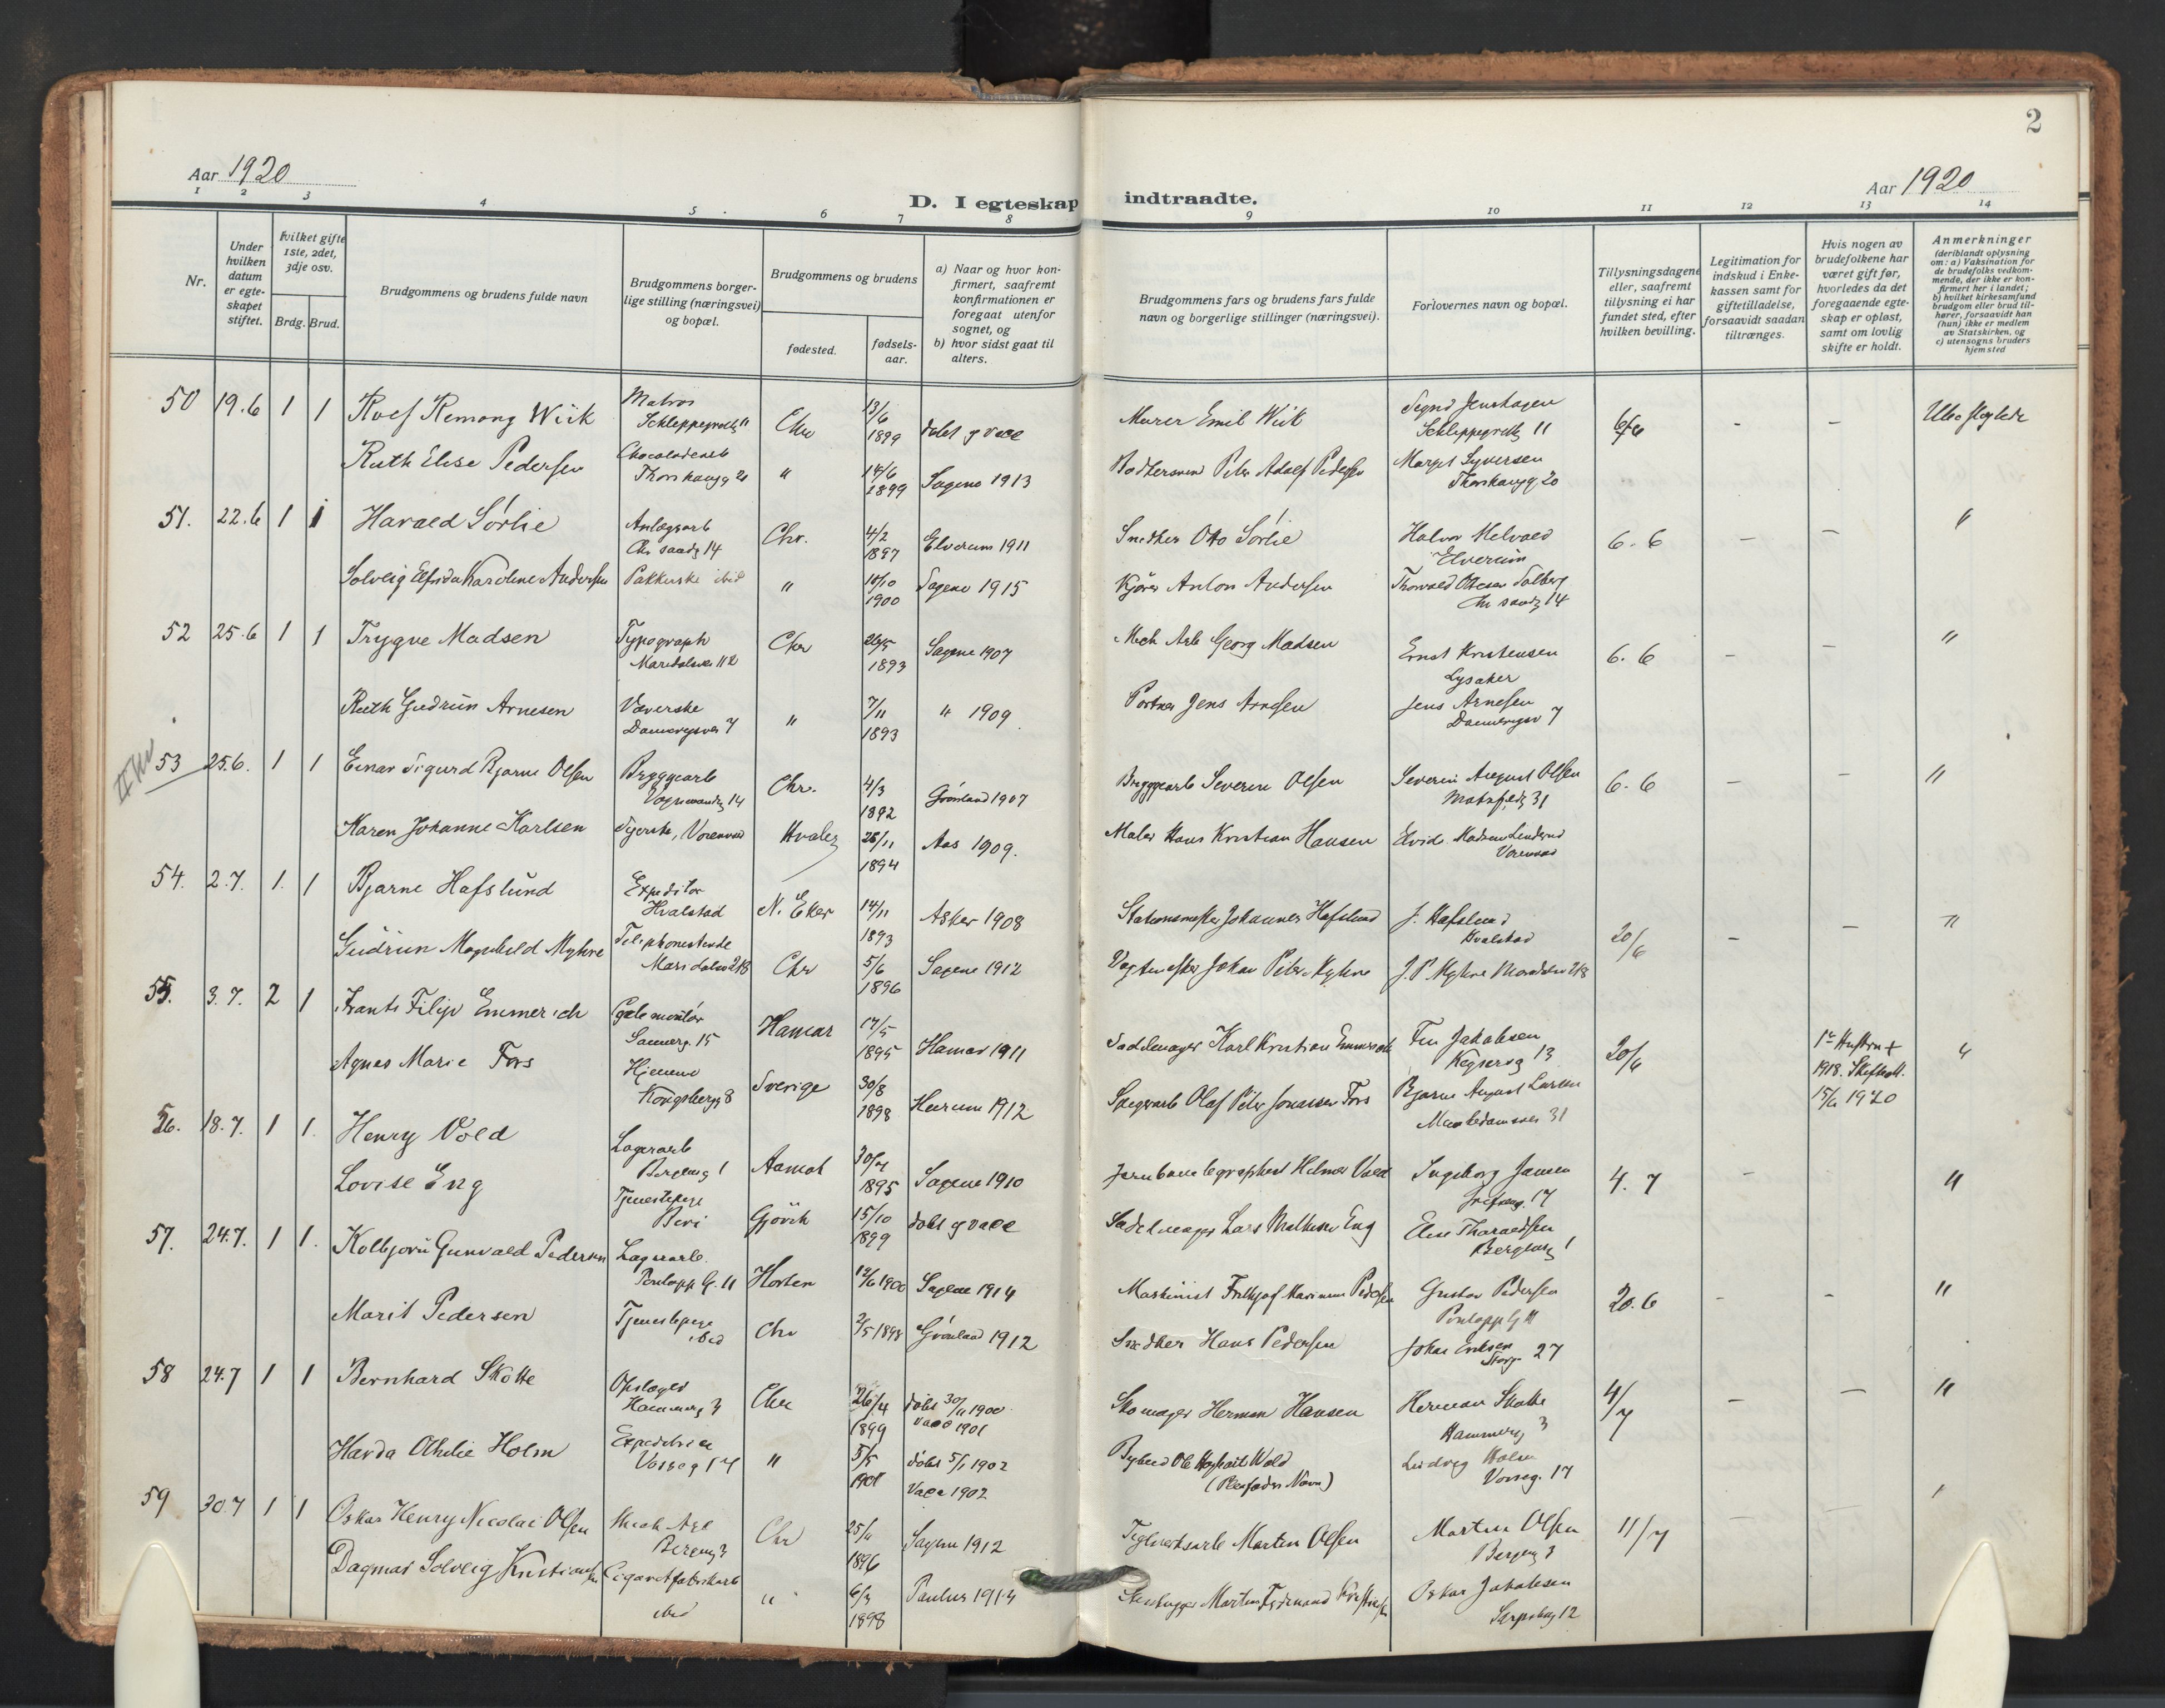 2
Aar 1920
Aar 1920
D. I egteskap indtraadte.
1 2 3 4 5 6 7 8 9 10 11 12 13 14
Nr.
Under hvilken datum er egteskapet stiftet.
hvilket gifte 1ste, 2det, 3dje osv.
Brdg. Brud.
Brudgommens og brudens fulde navn
Brudgommens borgerlige stilling (næringsvei) og bopæl.
Brudgommens og brudens
fødested.
fødselsaar.
a) Naar og hvor konfirmert, saafremt konfirmationen er foregaat utenfor sognet, og
b) hvor sidst gaat til alters.
Brudgommens fars og brudens fars fulde navn og borgerlige stillinger (næringsvei).
Forlovernes navn og bopæl.
Tillysningsdagene eller, saafremt tillysning ei har fundet sted, efter hvilken bevilling.
Legitimation for indskud i Enkekassen samt for giftetilladelse, forsaavidt saadan tiltrænges.
Hvis nogen av brudefolkene har været gift før, hvorledes da det foregaaende egteskap er opløst, samt om lovlig skifte er holdt.
Anmerkninger (deriblandt oplysning om: a) Vaksination for de brudefolks vedkommende, der ikke er konfirmert her i landet; b) hvilket kirkesamfund brudgom eller brud tilhører, forsaavidt han (hun) ikke er medlem av Statskirken, og c) utensogns bruders hjemsted
50 19.6 1 1 Rolf Remong Wiik Matros Schleppegrellsg 11 Chr 13/6 1899 døbt og vacc Murer Emil Wiik Schleppegrellsg 11 6/6 - -
Ruth Elise Pedersen Thorshaugg 20 " 14/6 1899 Sagene 1913 Peter Adolf Pedersen Margit Syversen Thorshaugg. 20
51. 22.6 1 1 Harald Sörlie Anlægsarb Chr sandg 14 Chr. 4/2 1897 Elverum 1911 Snedker Otto Sörlie Halvor Melvold Elverum 6.6 - - "
Solveig Elfrida Karoline Andersen Pakkerske ibid " 10/10 1900 Sagene 1915 Kjører Anton Andersen Thorvald Olsen Solberg Chr sandg 14
52 25.6 1 1 Trygve Madsen Typograph Maridalsvei 112 Chr 26/5 1893 Sagene 1907 Mech Arb Georg Madsen Ernst Kristensen Lysaker 6.6 - - "
Ruth Gudrun Arnesen Væverske Dannevigsvei 7 " 7/11 1893 " 1909 Portner Jens Arnesen Jens Arnesen Dannevigsv 7
II Kv
53 25.6. 1 1 Einar Sigurd Bjarne Olsen Bryggearb Vognmandsg 14 Chr. 4/3 1892 Grønland 1907 Bryggearb Severin Olsen Severin August Olsen 31 6.6 - - "
Karen Johanne Karlsen Syerske, Hvaler 25/11 1894 Aas 1909. Maler Hans Kristian Hansen
54. 2.7. 1. 1 Bjarne Hafslund Expeditør Hvalstad N. Eker 14/11 1893 Asker 1908 Stationsmester Johannes Hafslund J. Hafslund Hvalstad 20/6 - - "
Gudrun Magnhild Myhre Telephonistinde Maridalsv 218 Chr 5/6 1896 Sagene 1912 Vagtmester Johan Peter Myhre J. P. Myhre Maridalsv 218
55. 3.7. 2 1 Frants Filip Emmerich montør Sannerg. 15 Hamar 17/5 1895 Hamar 1911 Sadelmager Karl Kristian Emmerich Jakobsen Keyserg 13 20/6 1e Hustru + 1918. Skifteatt. 15/6 1920 "
Agnes Marie Fors Hjemme Kongsbergg 8 Sverige 30/8 1898 Hurum 1912 Olaf Peter Jonassen Fors Bjarne August Larsen Munkedamsvei 31
56. 18.7. 1 1. Henry Vold Lagerarb Bergensg 1 Aamot 30/7 1895 Sagene 1910 Jernbanetelegraphist Helmer Vold Ingeborg Jansen 17 4.7 - "
Lovise Eng Tjenestepige Beri Gjövik 15/10 1899 døbt og vacc Sadelmager Lars Mathisen Eng Else Tharaldsen Bergensg 1
57. 24.7. 1 1. Kolbjorn Gunvald Pedersen Lagerarb. Pontopp G. 11 Horten 12/6 1900 Sagene 1914 Maskinist Fridtjof Marinius Pedersen Gustav Pedersen Pontopp G 11 20.6 - - "
Marit Pedersen Tjenestepige ibid Chr 2/5 1898 Grönland 1912 Snedker Hans Pedersen Johan Eriksen Storg 27
58 24.7 1 1 Bernhard Skotte Opslager Hammerg 3 Chr 26/4 1899 døbt 30/11 1900 vacc 1901 Skomager Herman Hansen Herman Skotte Hammerg 3 4/7 - - "
Havda Othilie Holm Expeditrice Vorseg 17 " 5/5 1901 døbt 5/1 1902 Vacc 1902 Wold (Pleiefaders Navn) Ludvig Holm Vorseg. 17
59 30.7 1 1 Oskar Henry Nicolai Olsen Mech Arb Bergensg 3 Chr 25/11 1896 Sagene 1912 Teglverksarb Martin Olsen Martin Olsen Bergensg 3 11/7 -
Dagmar Solveig Kristiansen Cigaretfabrikarb ibid " 6/3 1898 Paulus 1913 Stenhugger Martin Ferdinand Kristiansen Oskar Jakobsen Sarpsborg 12